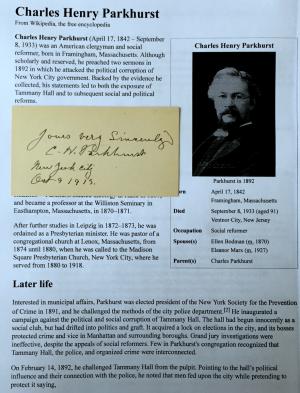 Charles Henry Parkhurst
From Wikipedia, the free encyclopedia
Charles Henry Parkhurst (April 17, 1842 – September
8, 1933) was an American clergyman and social
reformer, born in Framingham, Massachusetts. Although
scholarly and reserved, he preached two sermons in
1892 in which he attacked the political corruption of
New York City government. Backed by the evidence he
collected, his statements led to both the exposure of
Tammany Hall and to subsequent social and political
reforms.
Yours very Sincerely
C. H. Parkhurst
New York City
Oct 9 1913.
and became a professor at the Williston Seminary in
Easthampton, Massachusetts, in 1870–1871.
After further studies in Leipzig in 1872–1873, he was
ordained as a Presbyterian minister. He was pastor of a
congregational church at Lenox, Massachusetts, from
1874 until 1880, when he was called to the Madison
Square Presbyterian Church, New York City, where he
served from 1880 to 1918.
Charles Henry Parkhurst
Parkhurst in 1892
April 17, 1842
Framingham, Massachusetts
Died September 8, 1933 (aged 91)
Ventnor City, New Jersey
Occupation Social reformer
Spouse(s) Ellen Bodman (m. 1870)
Eleanor Marx (m. 1927)
Parent(s) Charles Parkhurst
Later life
Interested in municipal affairs, Parkhurst was elected president of the New York Society for the Prevention
of Crime in 1891, and he challenged the methods of the city police department.[2] He inaugurated a
campaign against the political and social corruption of Tammany Hall. The hall had begun innocuously as a
social club, but had drifted into politics and graft. It acquired a lock on elections in the city, and its bosses
protected crime and vice in Manhattan and surrounding boroughs. Grand jury investigations were
ineffective, despite the appeals of social reformers. Few in Parkhurst's congregation recognized that
Tammany Hall, the police, and organized crime were interconnected.
On February 14, 1892, he challenged Tammany Hall from the pulpit. Pointing to the hall's political
influence and their connection with the police, he noted that men fed upon the city while pretending to
protect it saying,